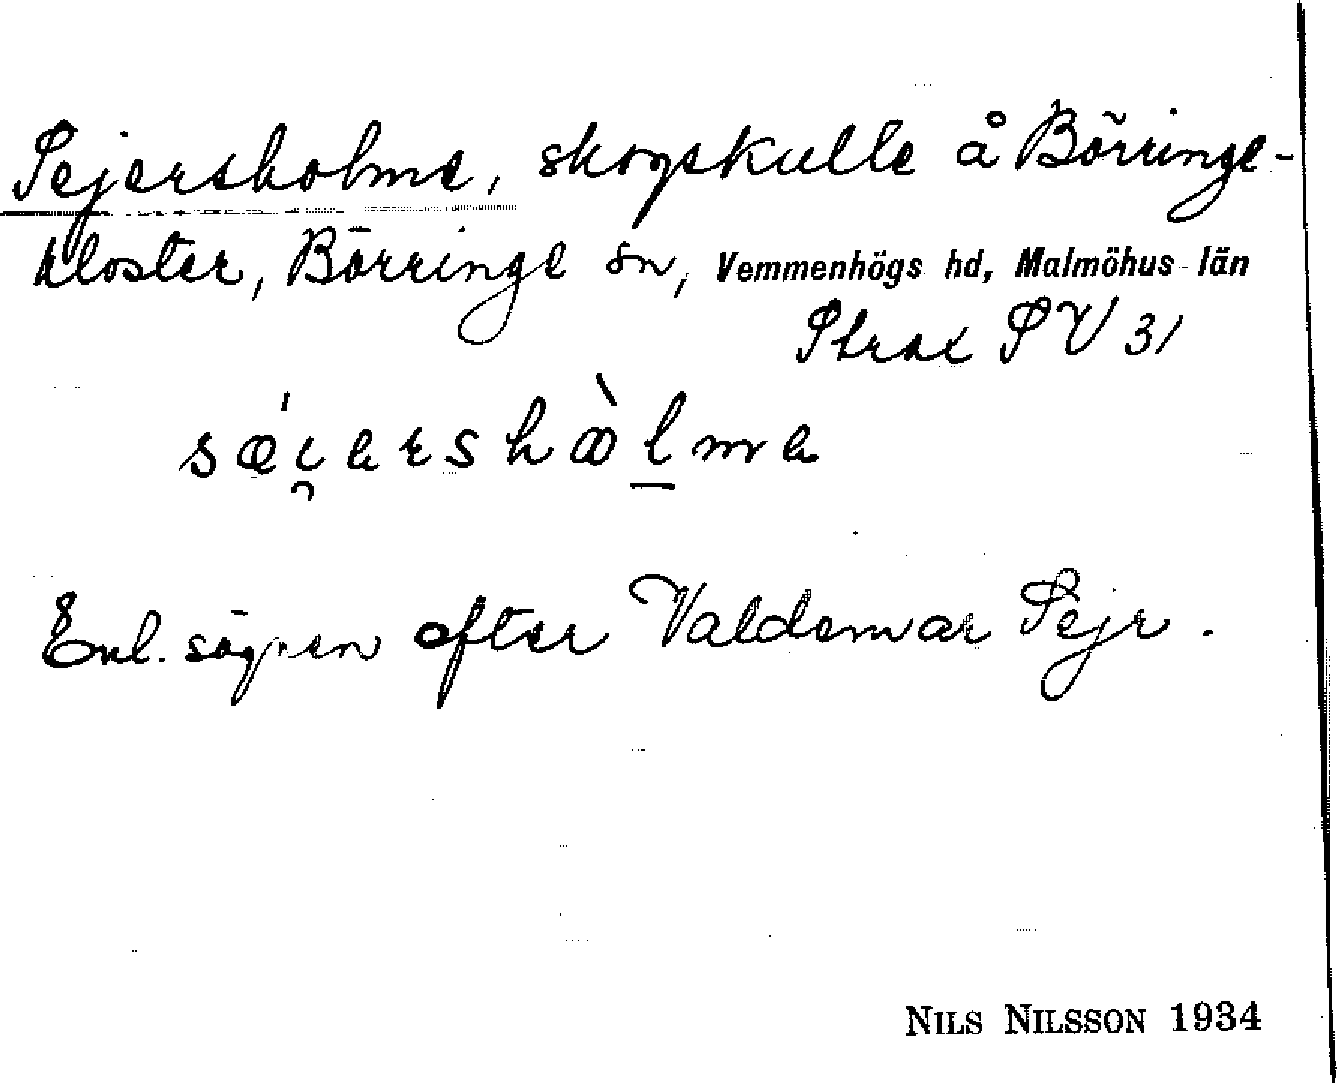 Sejersholme, skogskulle å Börringe-
kloster, Börringe sn, Vemmenhögs hd, Malmöhus län
Strax SV 31
sǽi̯ərshòl̠mə
Enl. sägnen efter Valdemar Sejr.
NILS NILSSON 1934